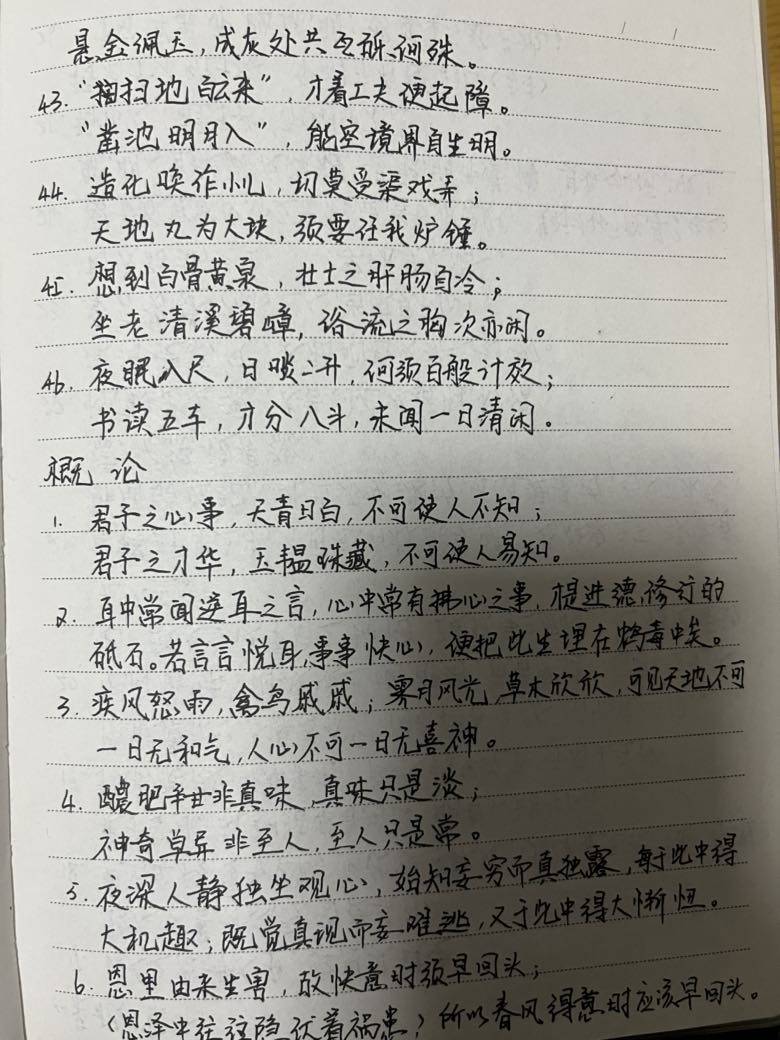 悬金佩玉，成灰处共瓦砾何殊。
43. "扫地白云来"，才着工夫便起障。
"凿池明月入"，能空境界自生明。
44. 造化唤作小儿，切莫受渠戏弄；
天地丸为大块，须要任我炉锤。
45. 想到白骨黄泉，壮士之肝肠自冷；
坐老清溪碧嶂，俗流之胸次亦闲。
46. 夜眠八尺，日啖二升，何须百般计较；
书读五车，才分八斗，未闻一日清闲。
概论
1. 君子之心事，天青日白，不可使人不知；
君子之才华，玉韫珠藏，不可使人易知。
2. 耳中常闻逆耳之言，心中常有拂心之事，是进德修行的
砥石。若言言悦耳，事事快心，便把此生埋在鸩毒中矣。
3. 疾风怒雨，禽鸟戚戚；霁月风光，草木欣欣，可见天地不可
一日无和气，人心不可一日无喜神。
4. 醲肥辛甘非真味，真味只是淡；
神奇卓异非至人，至人只是常。
5. 夜深人静独坐观心，始知妄穷而真独露，每于此中得
大机趣；既觉真现而妄难逃，又于此中得大惭忸。
6. 恩里由来生害，故快意时须早回头；
（恩泽中往往隐伏着祸患）所以春风得意时应该早回头。